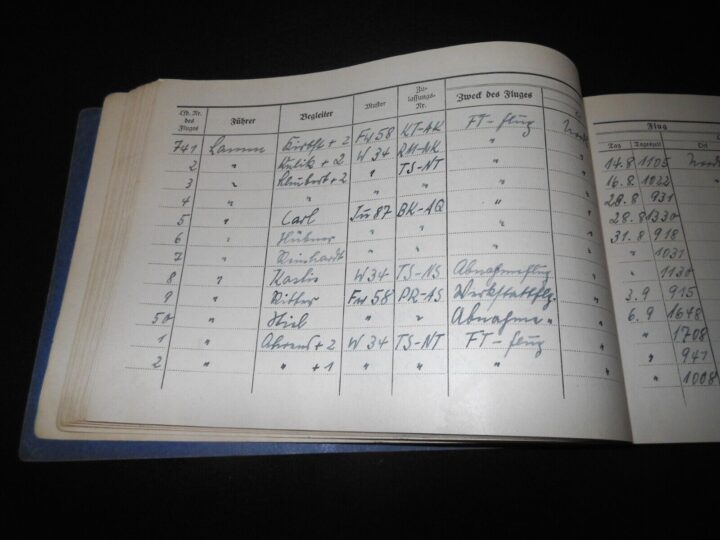 Lfd. Nr. des Fluges Führer Begleiter Muster Zulassungs-Nr. Zweck des Fluges Flug
Tag Tageszeit Ort
741 Lamm + 2 Fw 58 KT-AK FT-flug 14.8 1105
2 " Kulik + 2 W 34 RM-AK " 16.8. 1022
3 " Schubert + 2 " TS-NT " 28.8 931
4 " " " " " 28.8 1330
5 " Carl Ju 87 BK-AQ " 31.8 918
6 " Hübner " " " " 1031
7 " Reinhardt " " " " 1130
8 " W 34 TS-NS Abnahmeflug 3.9 915
9 " Ritter Fw 58 PR-AS Werkstattflg. 6.9 1648
50 " " " Abnahme " " 1708
1 " Ahrens + 2 W 34 TS-NT FT-flug " 941
2 " " + 1 " " " " 1008